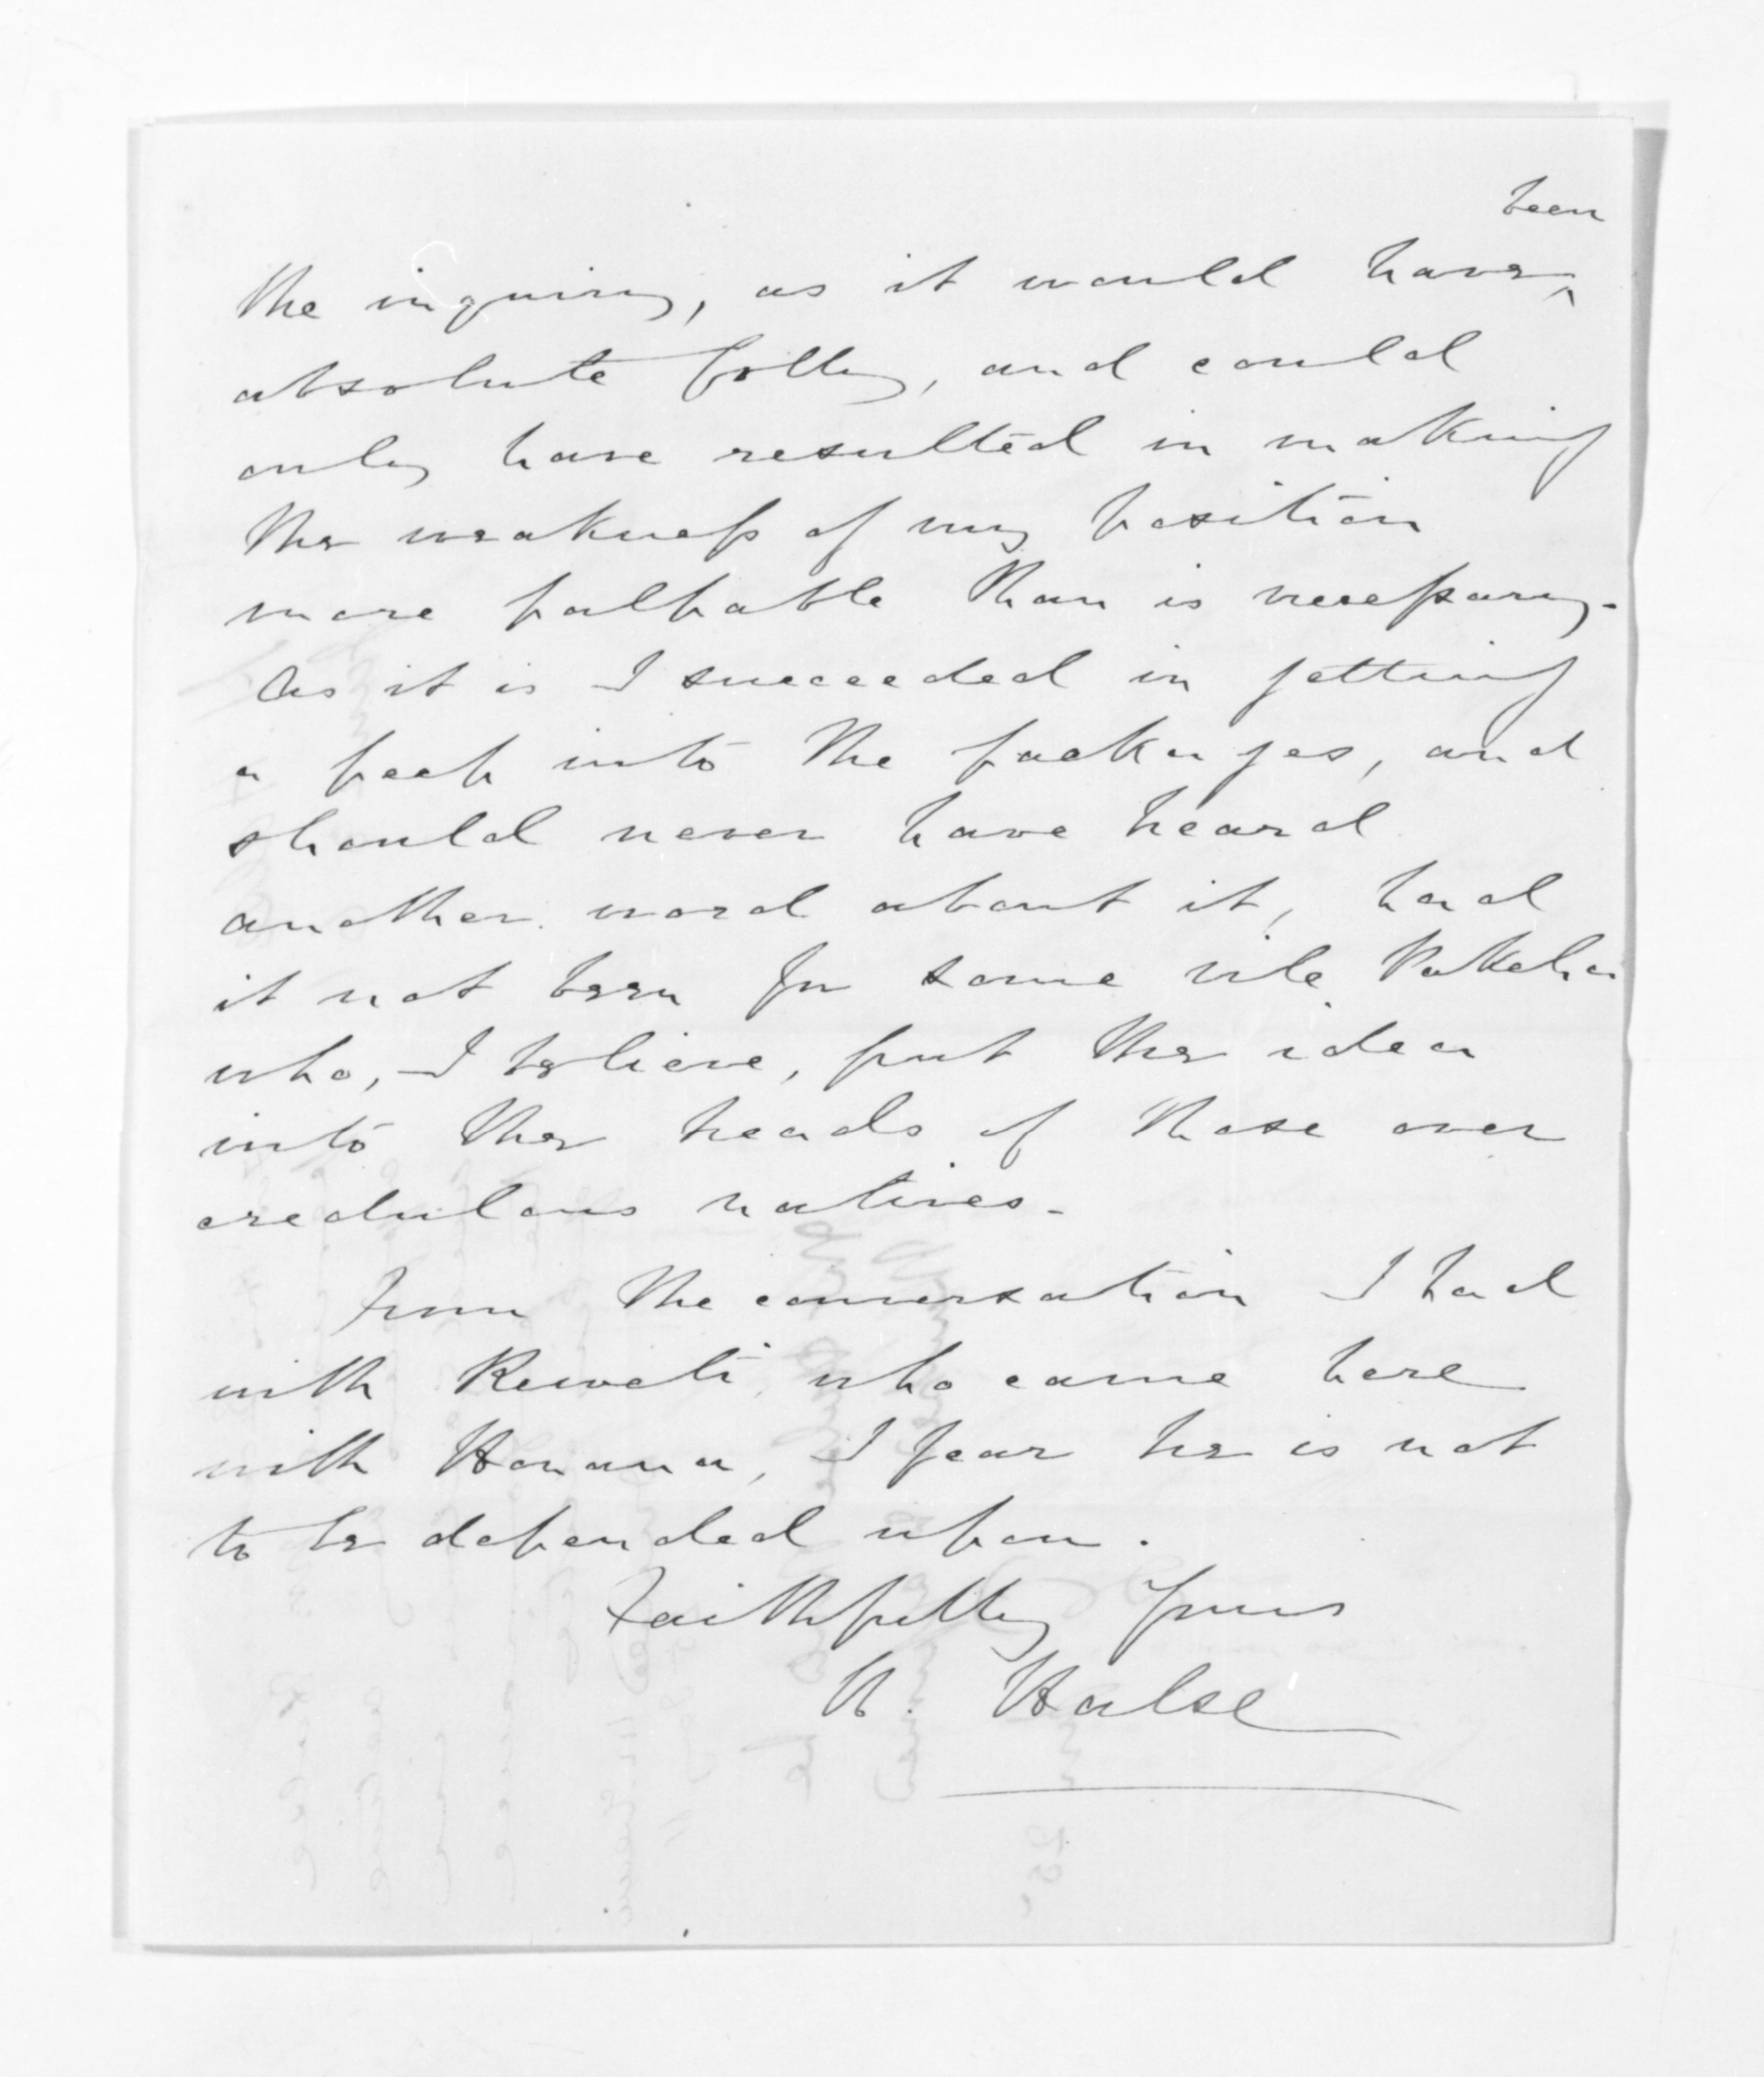 been
the inquiry, as it would have ‸
absolute folly, and could
only have resulted in making
the weakness of my position
more palpable than is necessary.
As it is I succeeded in getting
a peep into the packages, and
should never have heard
another word about it, had
it not been for some vile Pakeha
who, I believe, put the idea
into the heads of these over
credulous natives.
From the conversation I had
with Reweti who came here
with Honana, I fear he is not
to be depended upon.
Faithfully yours
H. Halse